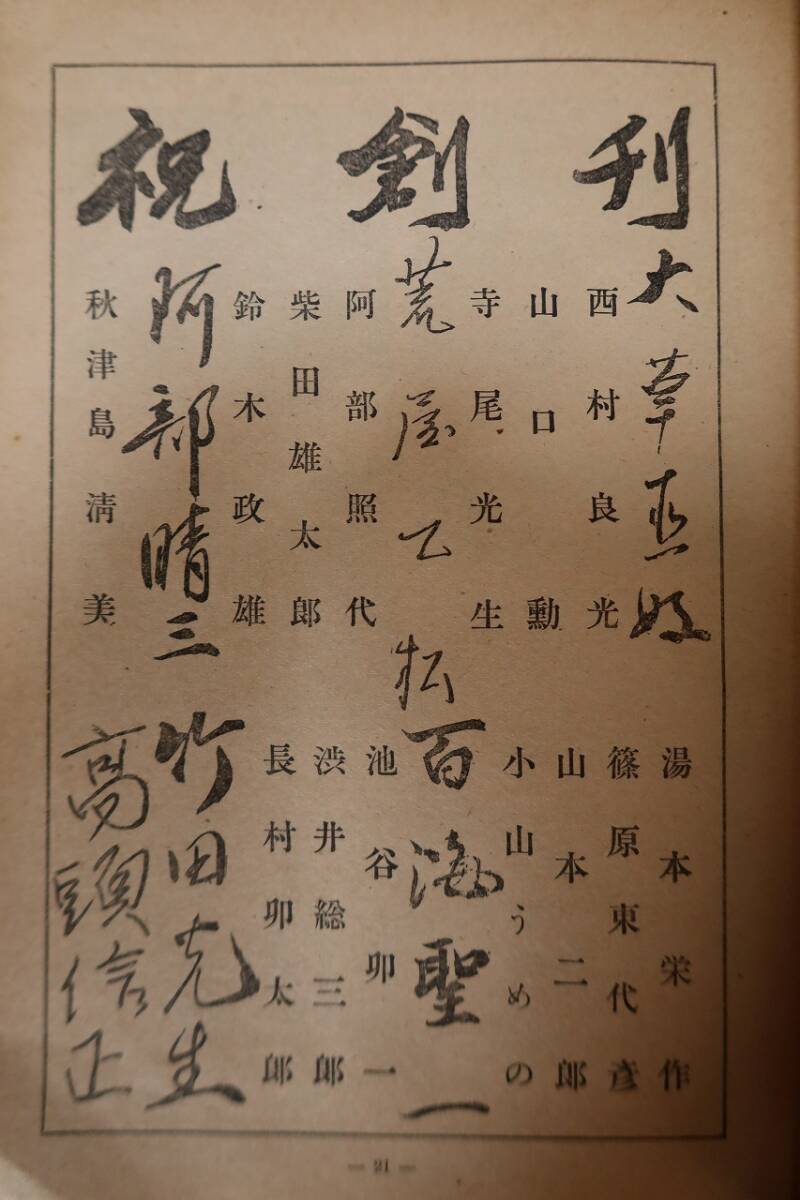 祝創刊
大草
西村良光
山口勳
寺尾光生
荒屋乙松
阿部照代
柴田雄太郎
鈴木政雄
阿部晴三
秋津島淸美
湯本栄作
篠原東代彦
山本二郎
小山うめの
百海聖一
池谷卯一
渋井総三郎
長村卯太郎
竹田克生
高頭信正
— 21 —